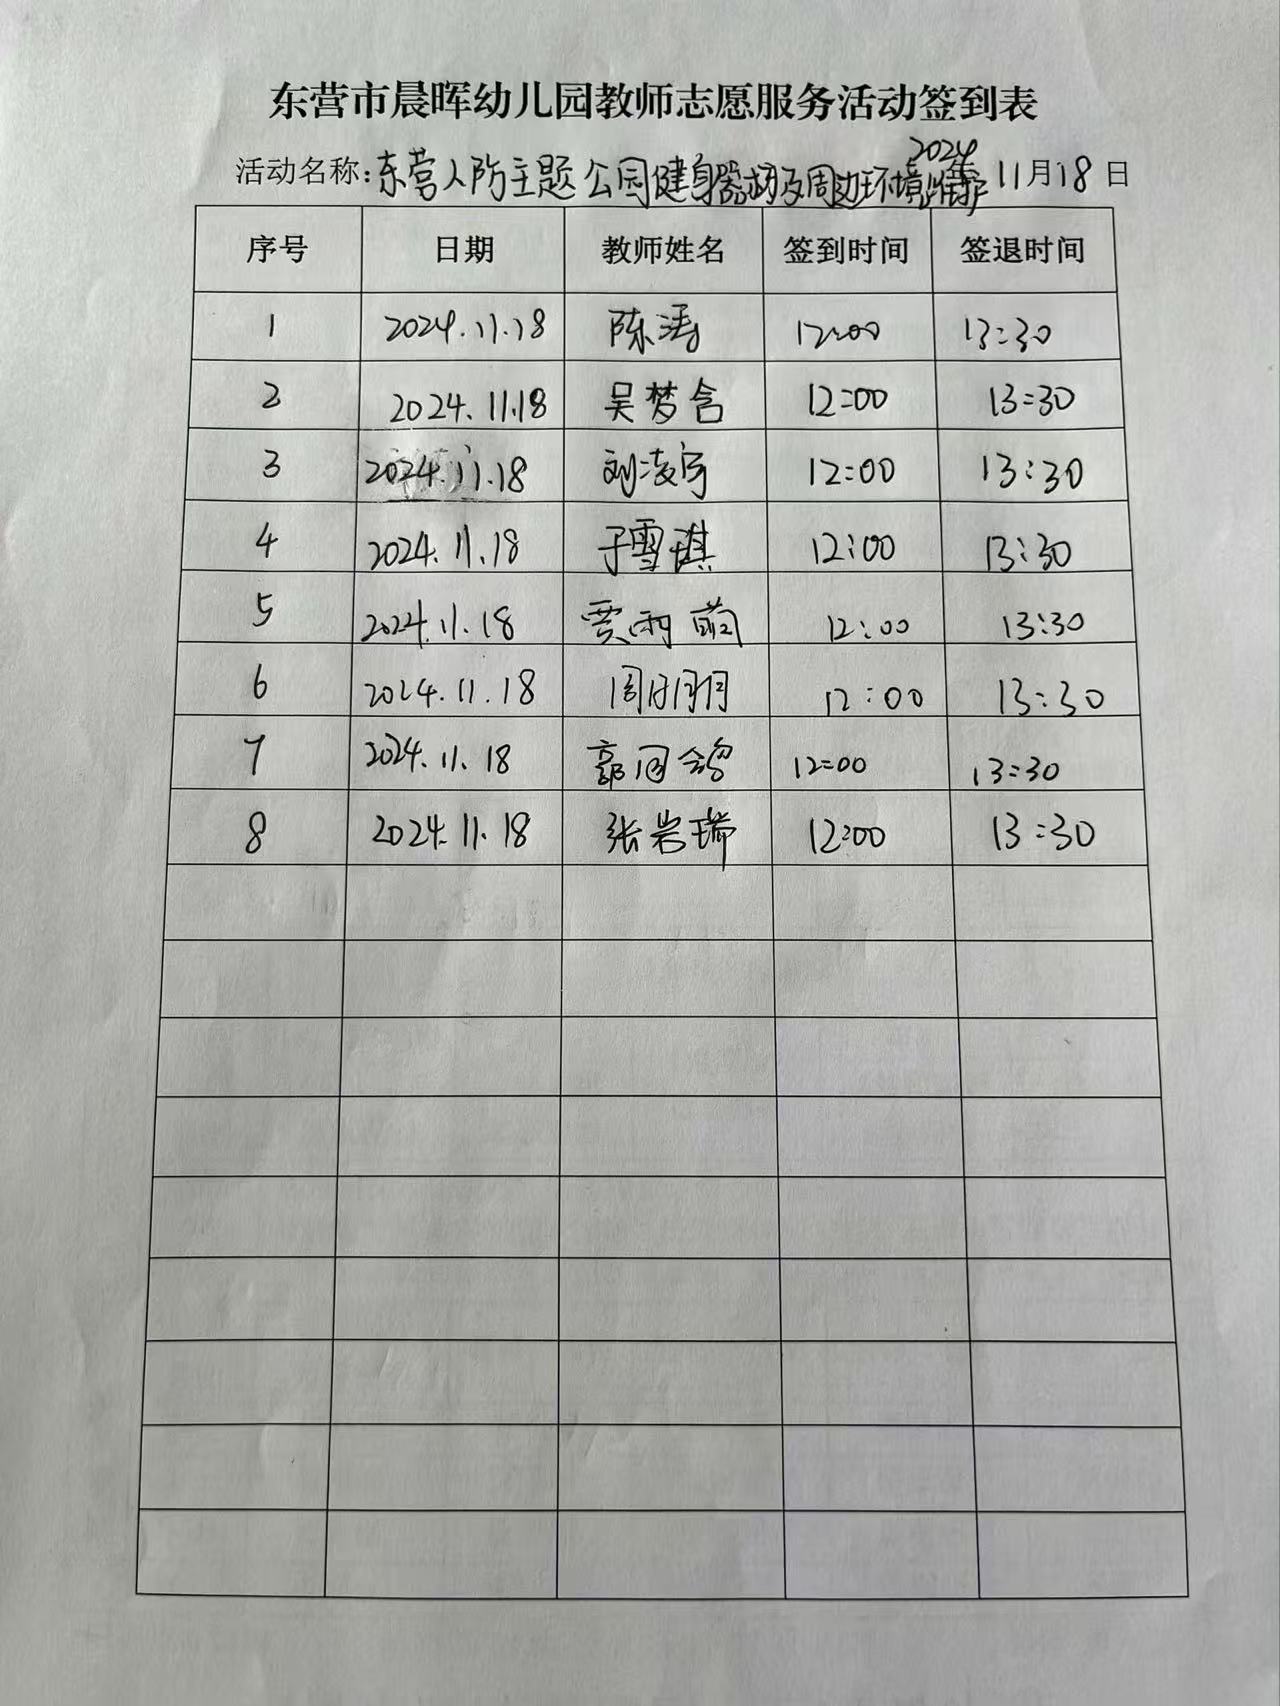 东营市晨晖幼儿园教师志愿服务活动签到表
活动名称:东营人防主题公园健身器材及周边环境维护 2024年11月18日
序号 日期 教师姓名 签到时间 签退时间
1 2024.11.18 陈涛 12:00 13:30
2 2024.11.18 吴梦含 12:00 13:30
3 2024.11.18 刘凌宇 12:00 13:30
4 2024.11.18 于雪琪 12:00 13:30
5 2024.11.18 贾雨萌 12:00 13:30
6 2024.11.18 周明月 12:00 13:30
7 2024.11.18 郭同鸽 12:00 13:30
8 2024.11.18 张岩瑞 12:00 13:30